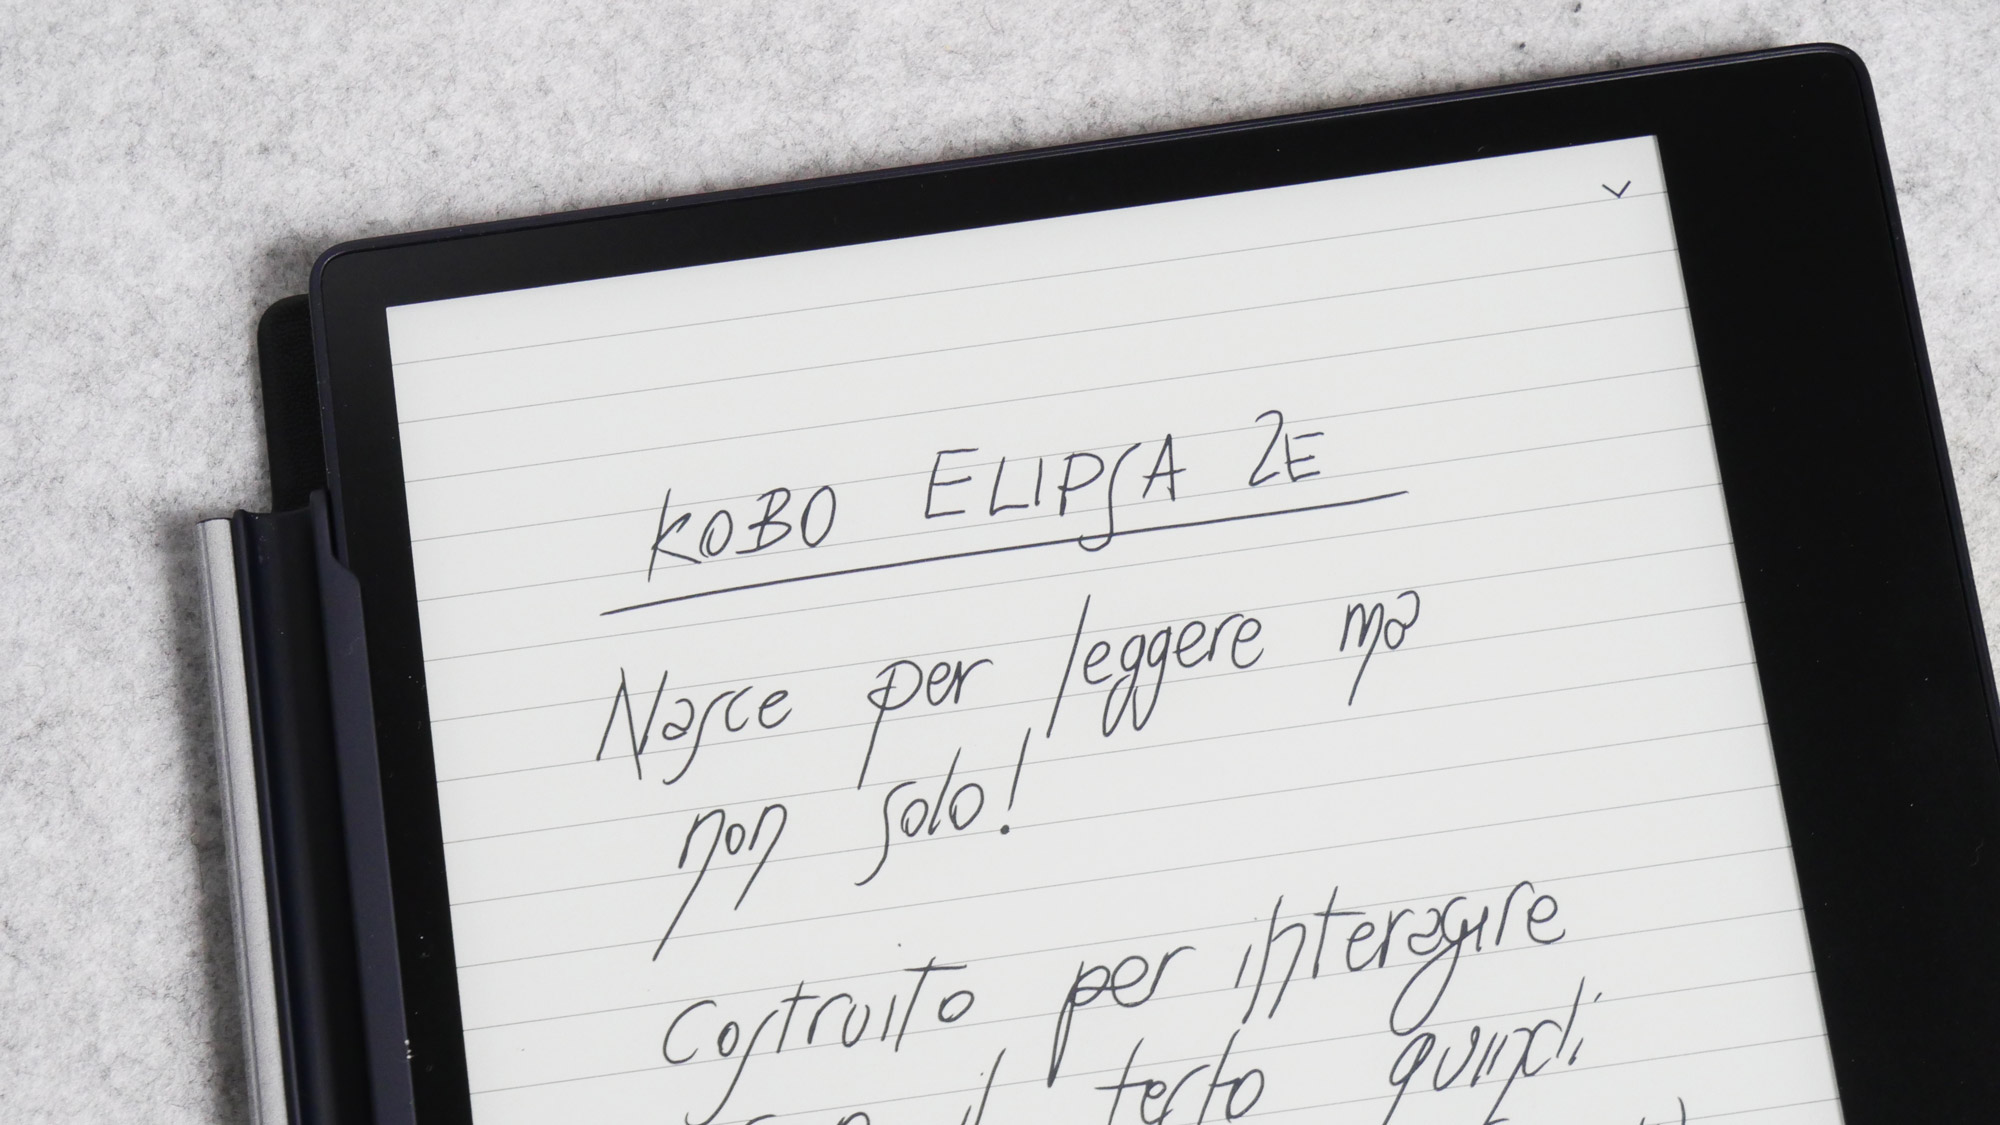 KOBO ELIPSA 2E
Nasce per leggere ma
non solo!
Costruito per interagire
con il testo quindi